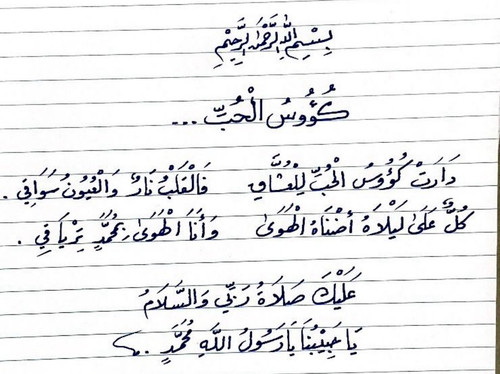 بِسْمِ اللَّهِ الرَّحْمَٰنِ الرَّحِيْمِ
كُؤُوسُ الْحُبِّ ...
دَارَتْ كُؤُوسُ الْحُبِّ لِلْعُشَّاقِ فَالْقَلْبُ نَارٌ وَالْعُيُونُ سَوَاقِي .
كُلٌّ عَلَى لَيْلَاهُ أَضْنَاهُ الْهَوَىٰ وَأَنَا الْهَوَىٰ بِمُحَمَّدٍ تِرْيَاقِي .
عَلَيْكَ صَلَاةُ رَبِّي وَالسَّلَامُ
يَا حَبِيْبُنَا يَا رَسُولُ اللَّهِ مُحَمَّدٍ ..